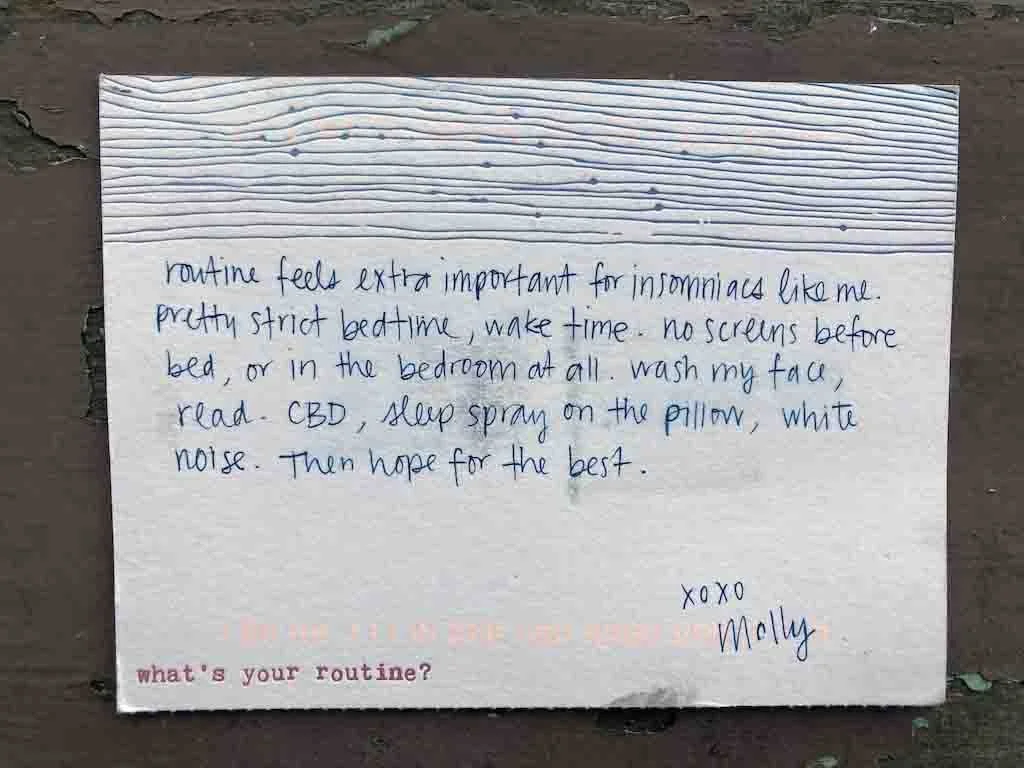 routine feels extra important for insomniacs like me.
pretty strict bedtime, wake time. no screens before
bed, or in the bedroom at all. wash my face,
read. CBD, sleep spray on the pillow, white
noise. Then hope for the best.
xoxo
Molly
what's your routine?